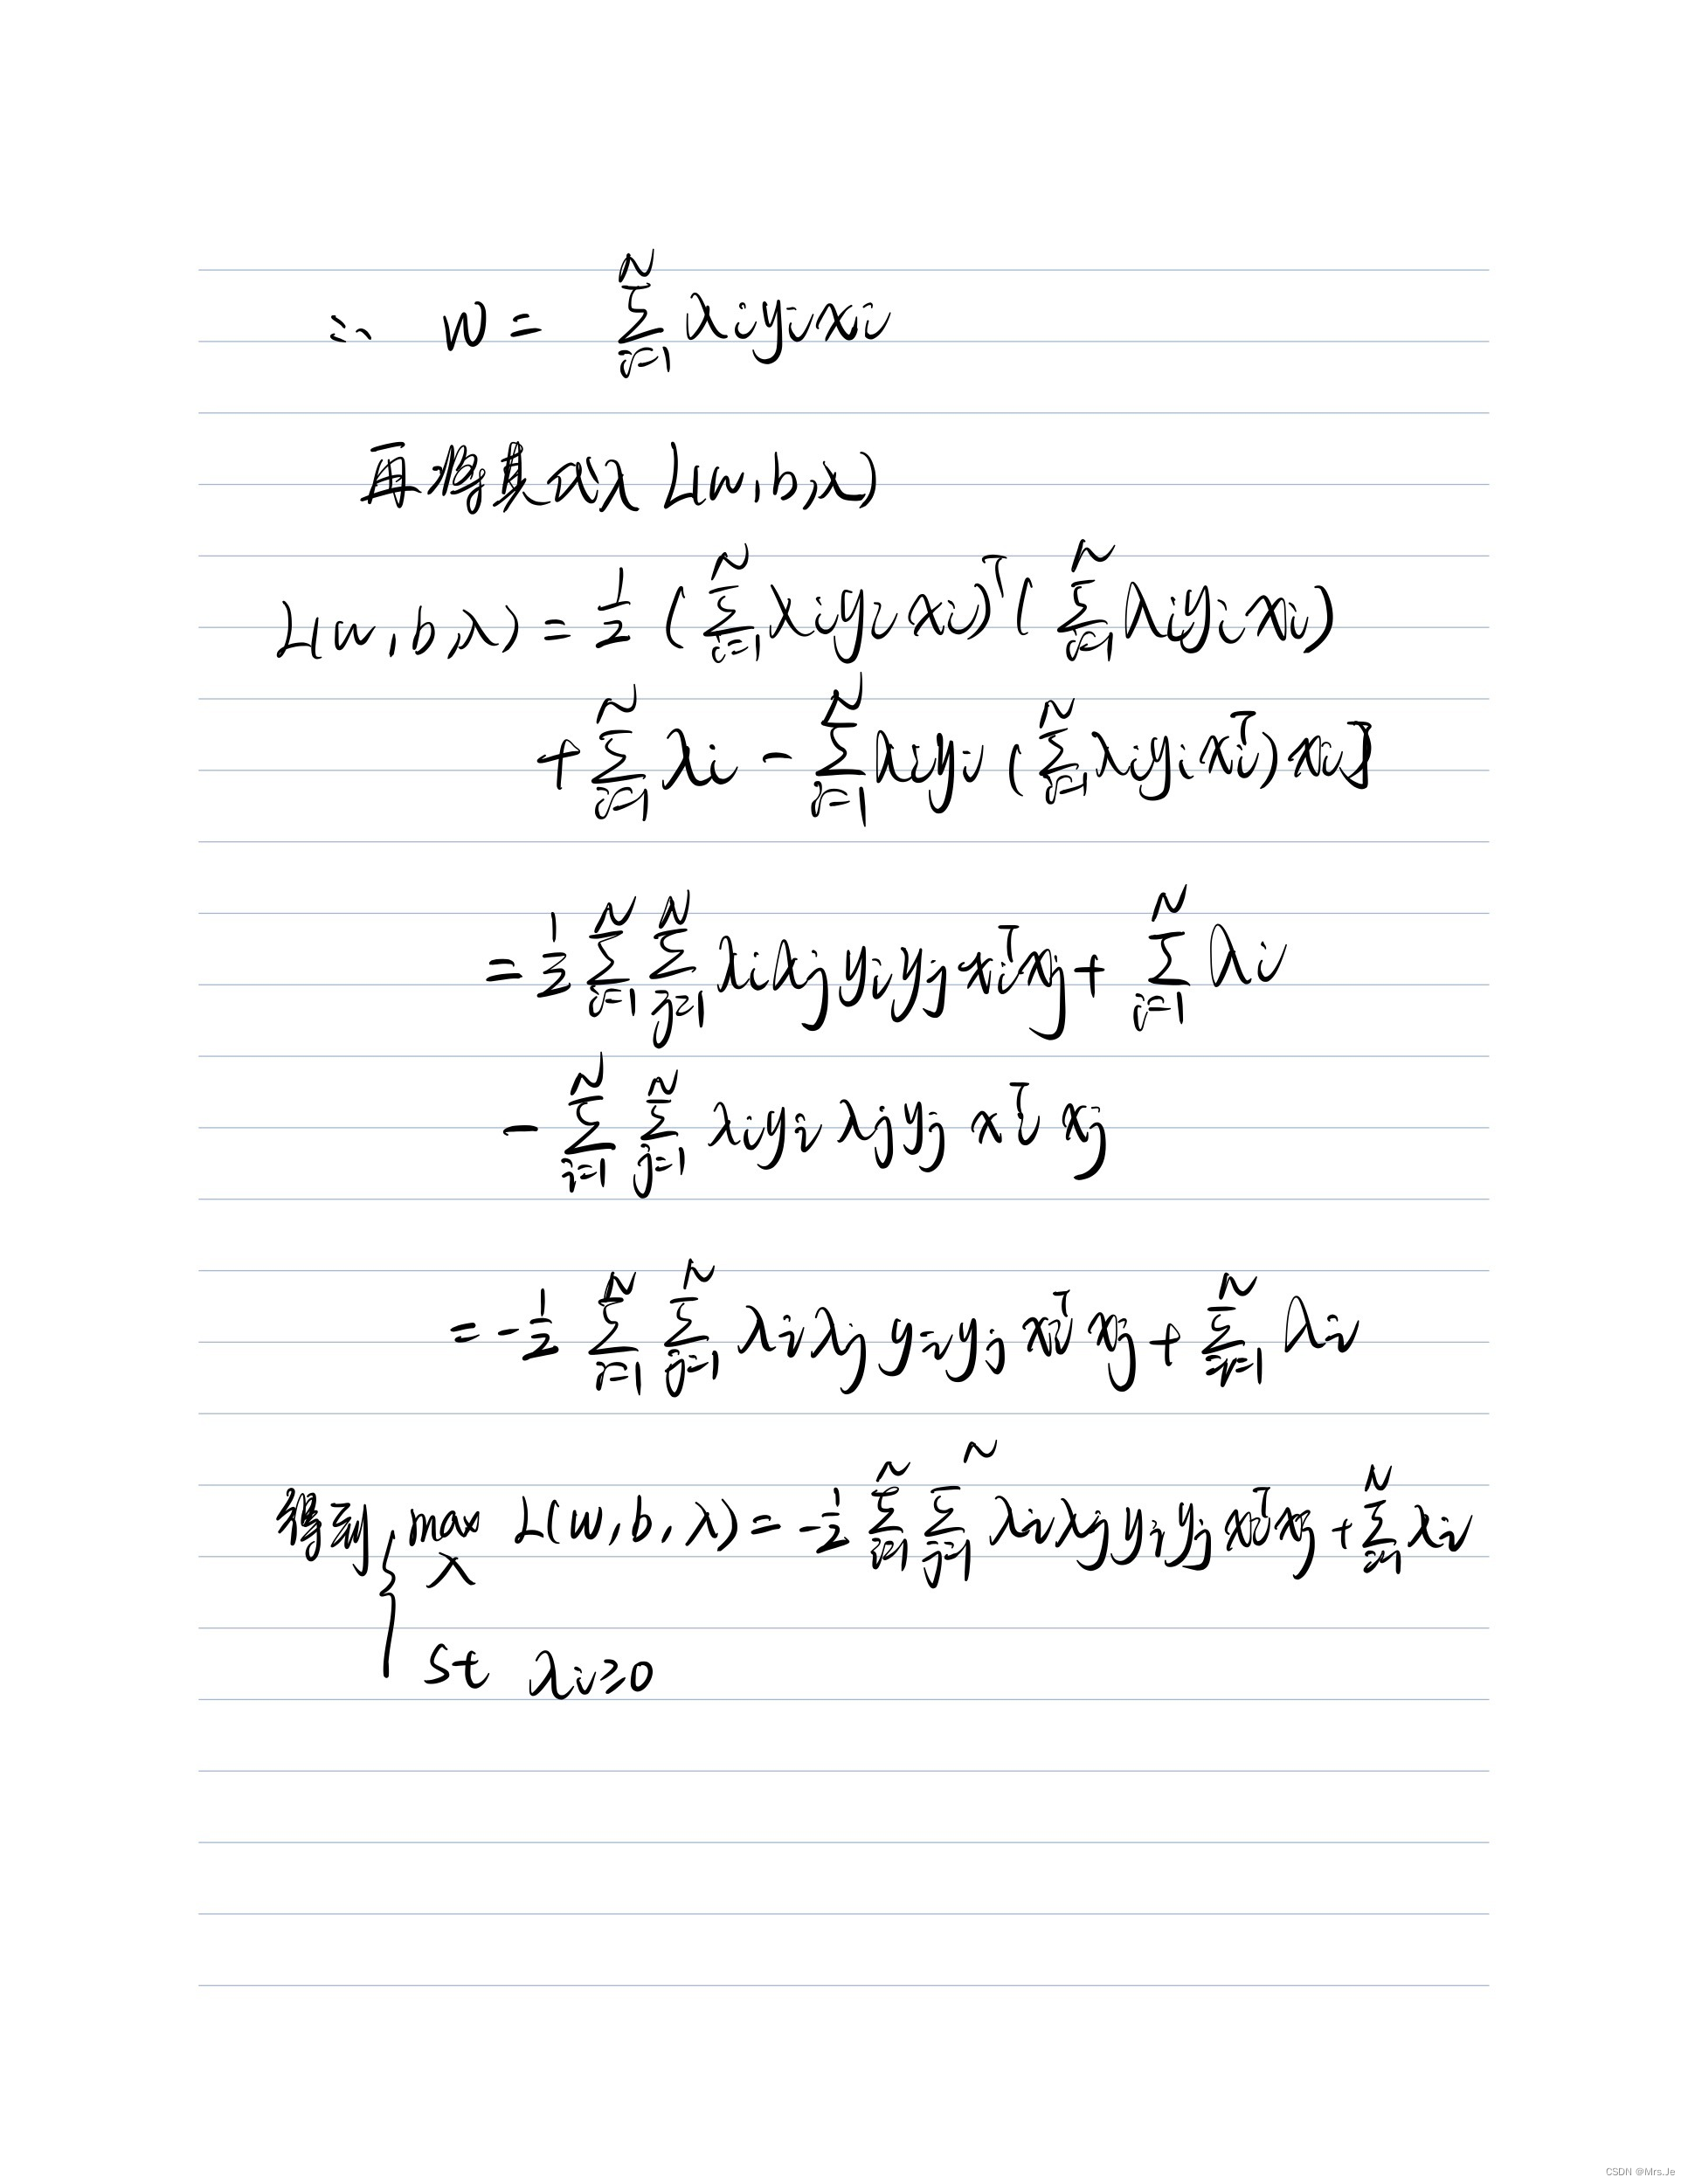 ∴ w = ∑_{i=1}^{N} λi yi xi
再 对λ L(w,b,λ)
L(w,b,λ) = 1/2 (∑_{i=1}^{N} λi yi xi)^T (∑_{i=1}^{N} λi yi xi)
+ ∑_{i=1}^{N} λi - ∑_{i=1}^{N} [λi yi (∑_{i=1}^{N} λi yi xi^T) xi]
= 1/2 ∑_{i=1}^{N} ∑_{j=1}^{N} λi λj yi yj xi^T xj + ∑_{i=1}^{N} λi
- ∑_{i=1}^{N} ∑_{j=1}^{N} λi yi λj yj xi^T xj
= -1/2 ∑_{i=1}^{N} ∑_{j=1}^{N} λi λj yi yj xi^T xj + ∑_{i=1}^{N} λi
得到 { max_λ L(w,b,λ) = -1/2 ∑_{i=1}^{N} ∑_{j=1}^{N} λi λj yi yj xi^T xj + ∑_{i=1}^{N} λi
st λi≥0
CSDN @Mrs.Je